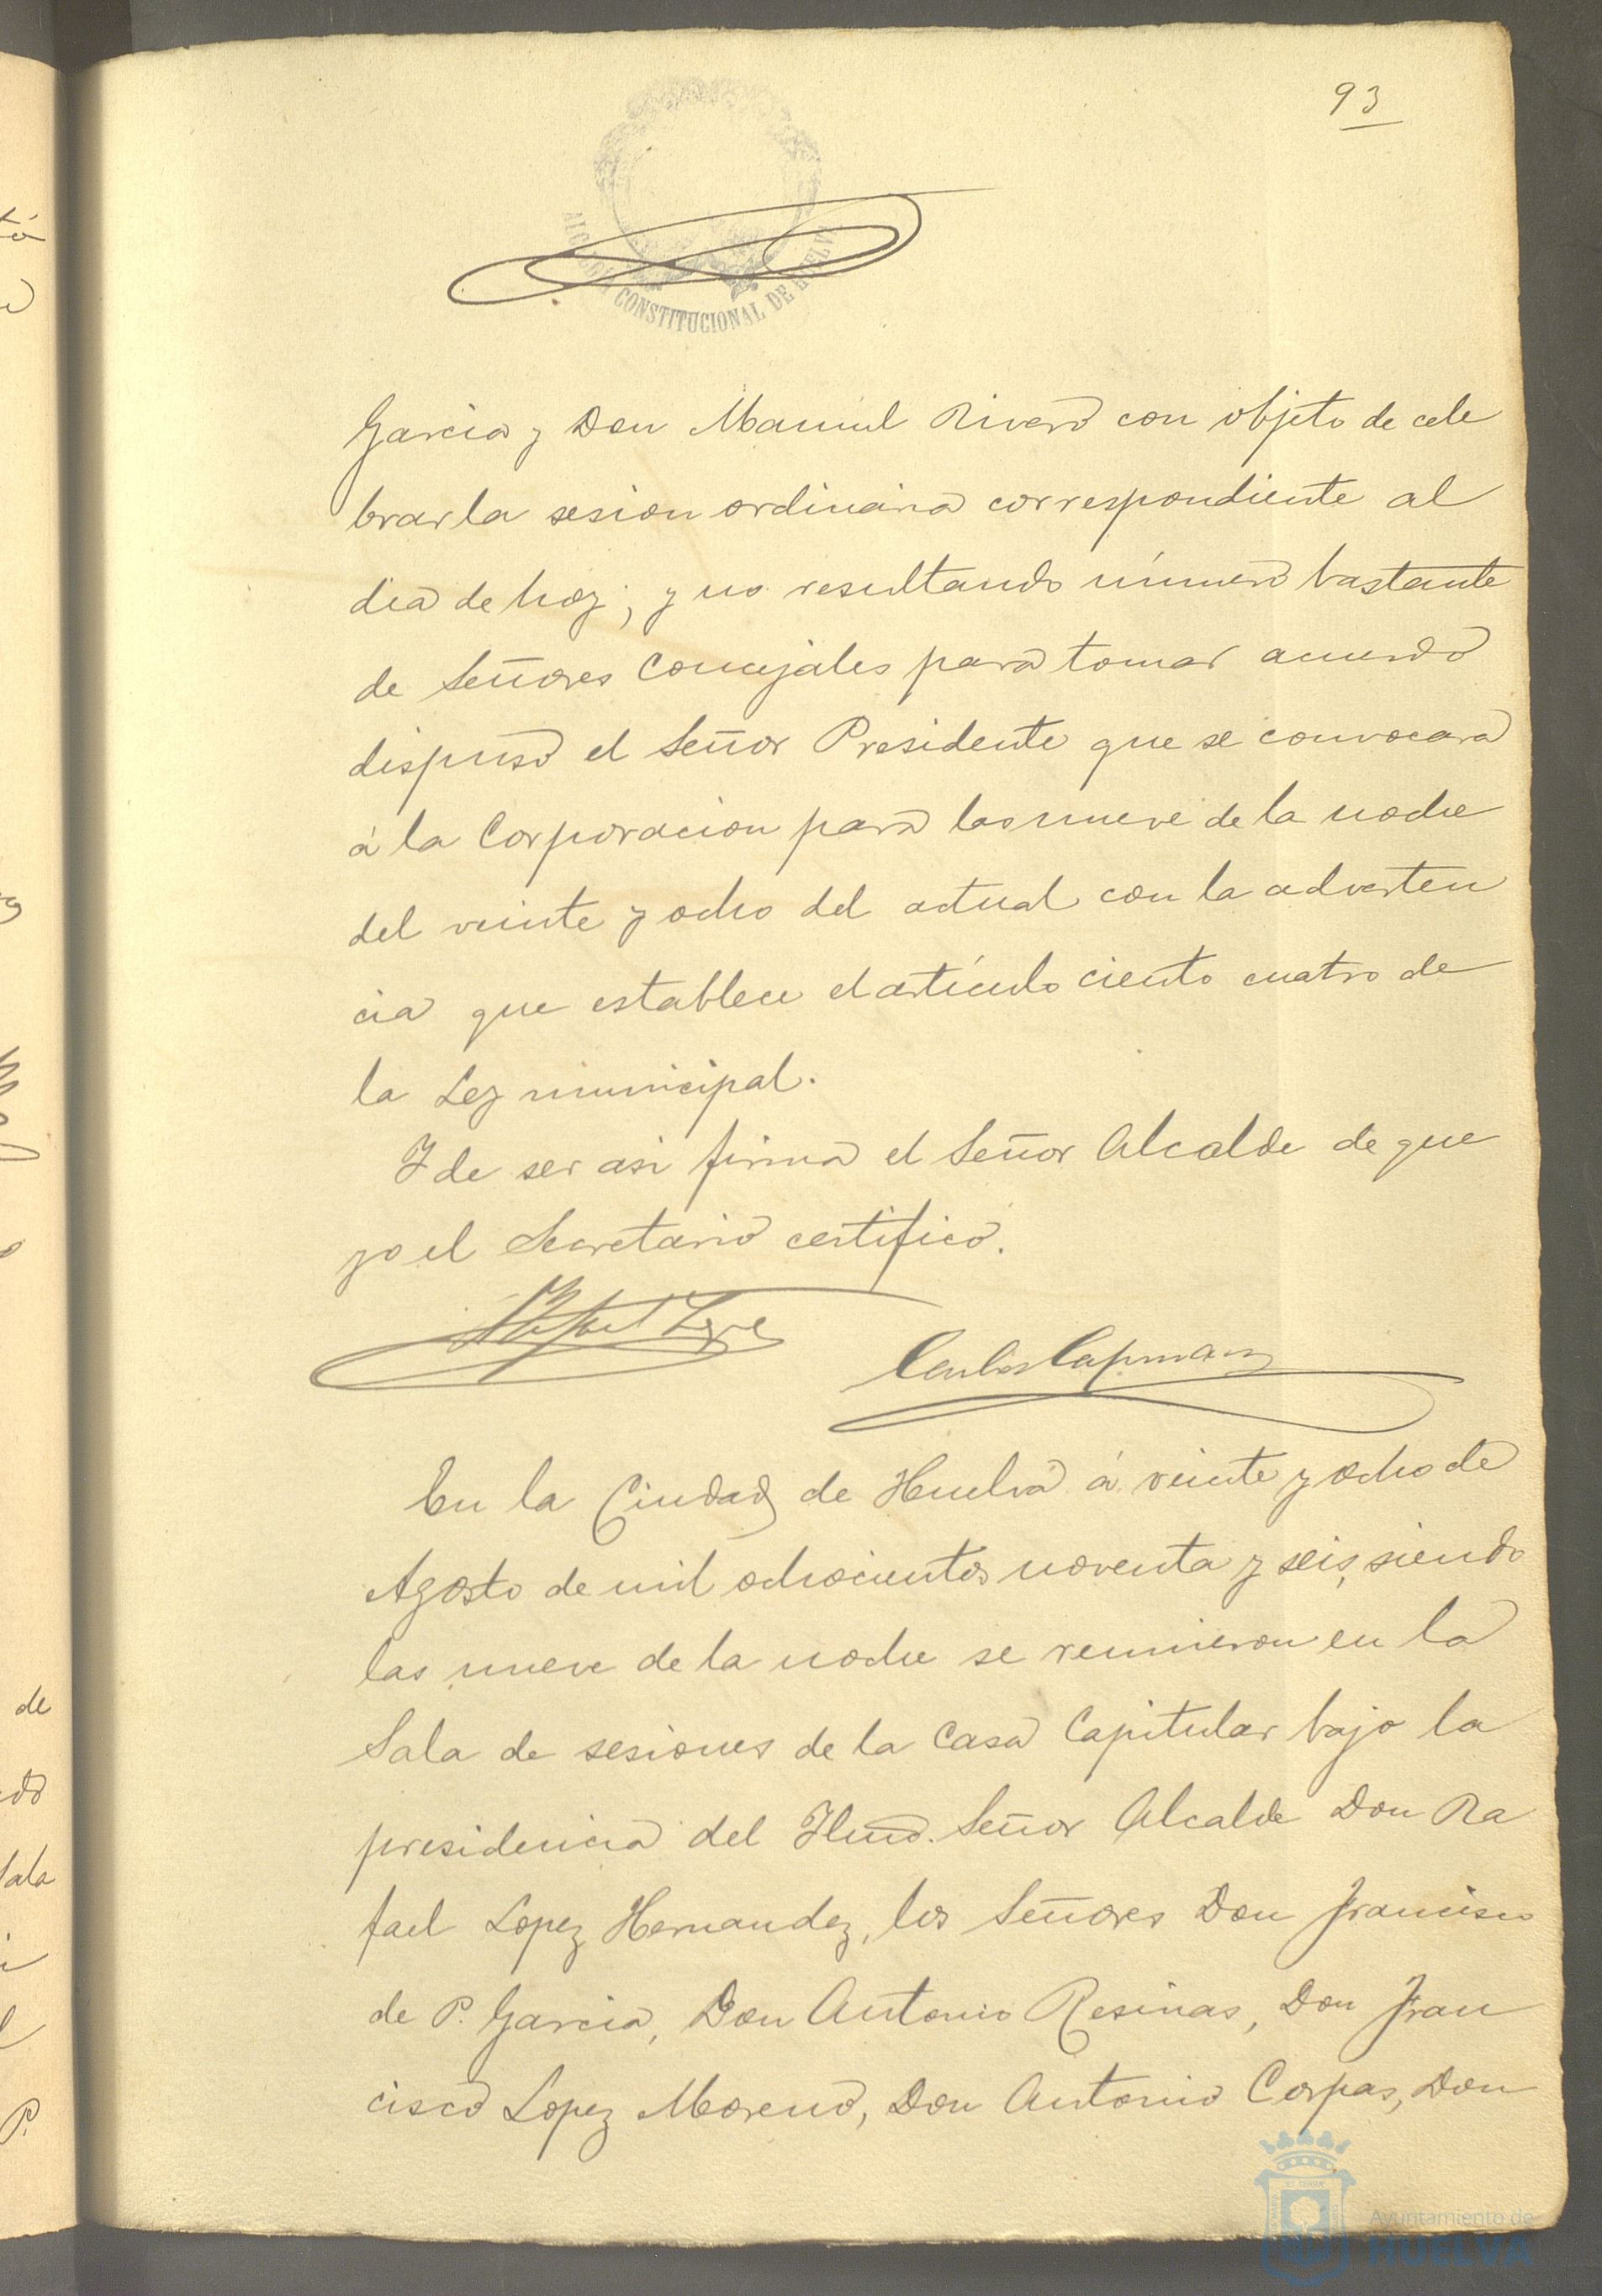 93
ALCALDIA CONSTITUCIONAL DE HUELVA
Garcia y Don Manuel Rivero con objeto de cele
brar la sesion ordinaria correspondiente al
dia de hoy; y no resultando número bastante
de Señores Concejales para tomar acuerdo
dispuso el Señor Presidente que se convocara
á la Corporacion para las nueve de la noche
del veinte y ocho del actual con la adverten
cia que establece el artículo ciento cuatro de
la Ley municipal.
Y de ser asi firma el Señor Alcalde de que
yo el Secretario certifico.
Rafael Lopez
Carlos Capmany
En la Ciudad de Huelva á veinte y ocho de
Agosto de mil ochocientos noventa y seis, siendo
las nueve de la noche se reunieron en la
Sala de sesiones de la Casa Capitular bajo la
presidencia del Ilmo. Señor Alcalde Don Ra
fael Lopez Hernandez, los Señores Don Francisco
de P. Garcia, Don Antonio Resinas, Don Fran
cisco Lopez Moreno, Don Antonio Corpas, Don
Ayuntamiento de
HUELVA